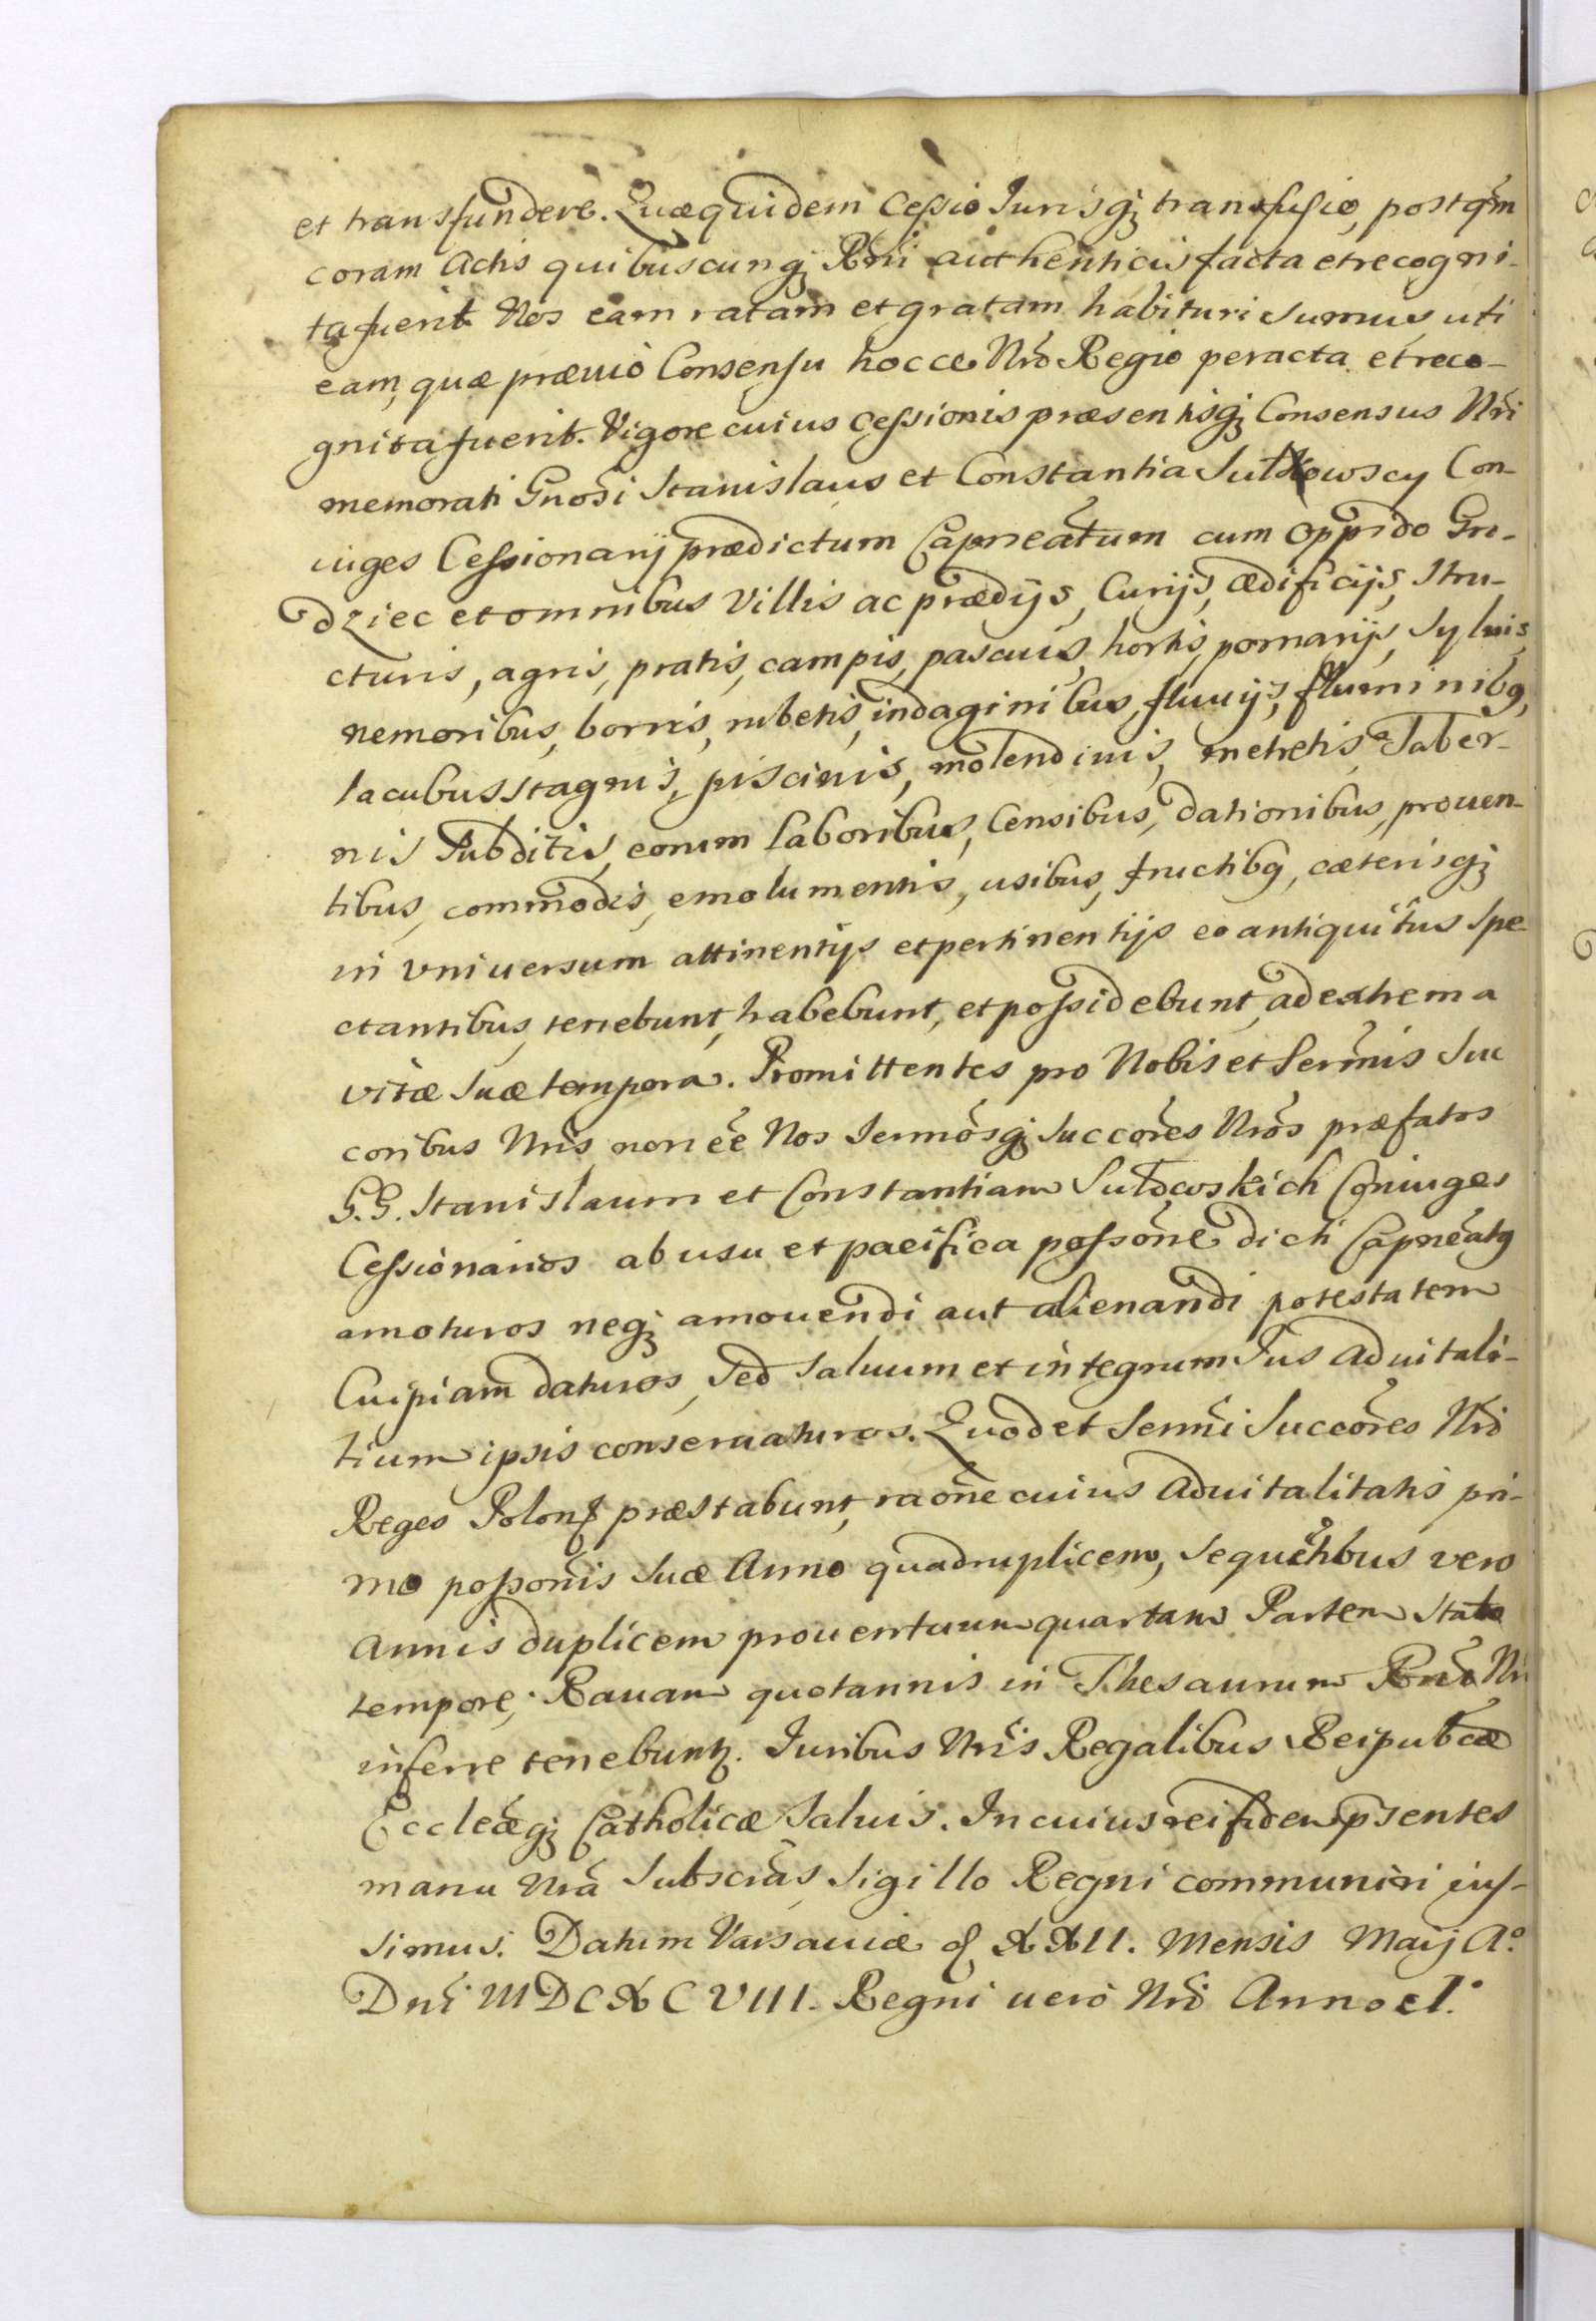 et transfundere. Quæquidem Cessio Jurisq; transfusio, postqm̃
coram Actis quibuscunq; Rñi authenticis facta et recogni-
ta fuerit Nos eam ratam et gratam habituri sumus, uti
eam, quæ præuio Consensu hocce Nrõ Regio peracta et reco-
gnita fuerit. Vigore cuius Cessionis præsentisq; Consensus Nrĩ
memorati Gnosĩ Stanislaus et Constantia Sułkowscy Con-
iuges Cessionarij prædictum Capneãtum cum Oppido Gro-
dziec et omnibus Villis ac prædijs, Curijs, ædificijs, Stru-
cturis, agris, pratis, campis, pascuis, hortis, pomarijs, Syluis,
nemoribus, borris, rubetis, indaginibus, fluuijs, fluminibq,
lacubus stagnis, piscinis, molendinis, metretis, Taber-
nis Subditis, eorum laboribus, Censibus, dationibus, prouen-
tibus, commodis, emolumentis, usibus, fructibq, cæterisq;
in vniuersum attinentijs et pertinentijs eo antiquitus Spe
ctantibus, tenebunt, habebunt, et possidebunt, ad extrema
vitæ suæ tempora. Promittentes pro Nobis et Serm̃is Suc
coribus Nrĩs non eẽ Nos Sermõsq; Succorẽs Nrõs præfatos
G.G. Stanislaum et Constantiam Sułkowskich Coniuges
Cessionarios ab usu et pacifica possonẽ dicti Capneãtq
amoturos neq; amouendi aut alienandi potestatem
Cuipiam daturos, sed saluum et integrum Jus aduitali-
tium ipsis conseruaturos. Quod et Sermĩ Succorẽs Nrĩ
Reges Polonę præstabunt, raonẽ cuius Aduitalitatis pri-
mo possonĩs suæ Anno quadruplicem, sequẽtibus vero
annis duplicem prouentuum quartam Partem stato
tempore, Rauam quotannis in Thesaurum Rnĩ Nrĩ
inferre tenebunt. Juribus Nrĩs Regalibus Reipubcæ
Eccleæ̃q; Catholicæ saluis. In cuius rei fidem pṣentes
manu Nrã Subscrãs, Sigillo Regni communiri ius-
simus. Datum Varsauiæ d. XXII. Mensis Maij Aº
Dnĩ MDCXCVIII. Regni uero Nrĩ Anno I.